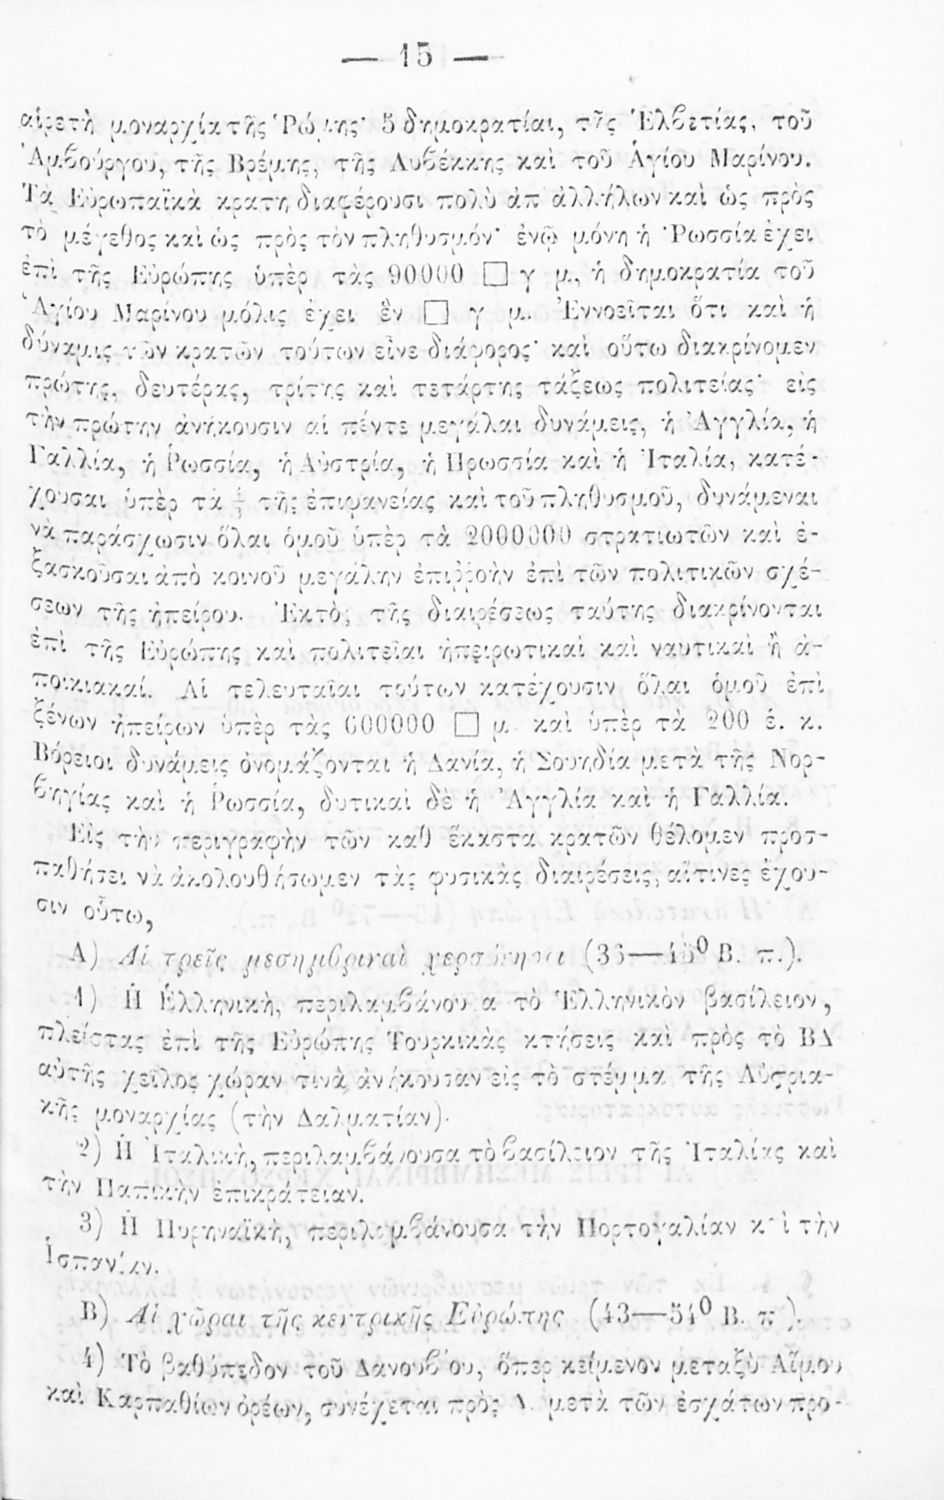 — 15 —
αἱρετὴ μοναρχία τῆς Ῥώμης· 5 δημοκρατίαι, τῆς Ἑλβετίας, τοῦ
Ἁμβούργου, τῆς Βρέμης, τῆς Λυβέκκης καὶ τοῦ Ἁγίου Μαρίνου.
Τὰ Εὐρωπαϊκὰ κράτη διαφέρουσι πολὺ ἀπ' ἀλλήλων καὶ ὡς πρὸς
τὸ μέγεθος καὶ ὡς πρὸς τὸν πληθυσμόν· ἐνῷ μόνη ἡ Ῥωσσία ἔχει
ἐπὶ τῆς Εὐρώπης ὑπὲρ τὰς 90000 □ γ μ, ἡ δημοκρατία τοῦ
Ἁγίου Μαρίνου μόλις ἔχει ἓν □ γ μ. Ἐννοεῖται ὅτι καὶ ἡ
δύναμις τῶν κρατῶν τούτων εἶνε διάφορος· καὶ οὕτω διακρίνομεν
πρώτης, δευτέρας, τρίτης καὶ τετάρτης τάξεως πολιτείας· εἰς
τὴν πρώτην ἀνήκουσιν αἱ πέντε μεγάλαι δυνάμεις, ἡ Ἀγγλία, ἡ
Γαλλία, ἡ Ῥωσσία, ἡ Αὐστρία, ἡ Πρωσσία καὶ ἡ Ἰταλία, κατέ-
χουσαι ὑπὲρ τὰ τῆς ἐπιφανείας καὶ τοῦ πληθυσμοῦ, δυνάμεναι
νὰ παράσχωσιν ὅλαι ὁμοῦ ὑπὲρ τὰ 2000000 στρατιωτῶν καὶ ἐ-
ξασκοῦσαι ἀπὸ κοινοῦ μεγάλην ἐπιῤῥοὴν ἐπὶ τῶν πολιτικῶν σχέ-
σεων τῆς ἠπείρου. Ἐκτὸς τῆς διαιρέσεως ταύτης διακρίνονται
ἐπὶ τῆς Εὐρώπης καὶ πολιτεῖαι ἠπειρωτικαὶ καὶ ναυτικαὶ ἢ ἀ-
ποικιακαί. Αἱ τελευταῖαι τούτων κατέχουσιν ὅλαι ὁμοῦ ἐπὶ
ξένων ἠπείρων ὑπὲρ τὰς 600000 □ μ. καὶ ὑπὲρ τὰ 200 ἑ. κ.
Βόρειοι δυνάμεις ὀνομάζονται ἡ Δανία, ἡ Σουηδία μετὰ τῆς Νορ-
βηγίας καὶ ἡ Ῥωσσία, δυτικαὶ δὲ ἡ Ἀγγλία καὶ ἡ Γαλλία.
Εἰς τὴν περιγραφὴν τῶν καθ' ἕκαστα κρατῶν θέλομεν προσ-
παθήσει νὰ ἀκολουθήσωμεν τὰς φυσικὰς διαιρέσεις, αἵτινες ἔχου-
σιν οὕτω,
Α) Αἱ τρεῖς μεσημβριναὶ χερσόνησοι (36—45⁰ Β. π.).
1) Ἡ Ἑλληνικὴ, περιλαμβάνουσα τὸ Ἑλληνικὸν βασίλειον,
πλείστας ἐπὶ τῆς Εὐρώπης Τουρκικὰς κτήσεις καὶ πρὸς τὸ ΒΔ
αὐτῆς χεῖλος χώραν τινὰ ἀνήκουσαν εἰς τὸ στέμμα τῆς Αὐστρια-
κῆς μοναρχίας (τὴν Δαλματίαν).
2) Ἡ Ἰταλικὴ, περιλαμβάνουσα τὸ βασίλειον τῆς Ἰταλίας καὶ
τὴν Παπικὴν ἐπικράτειαν.
3) Ἡ Πυρηναϊκὴ, περιλαμβάνουσα τὴν Πορτογαλίαν καὶ τὴν
Ἱσπανίαν.
Β) Αἱ χῶραι τῆς κεντρικῆς Εὐρώπης (43—54⁰ Β. π.).
1) Τὸ βαθύπεδον τοῦ Δανουβίου, ὅπερ κείμενον μεταξὺ Αἵμου
καὶ Καρπαθίων ὀρέων, συνέχεται πρὸς Δ. μετὰ τῶν ἐσχάτων προ-